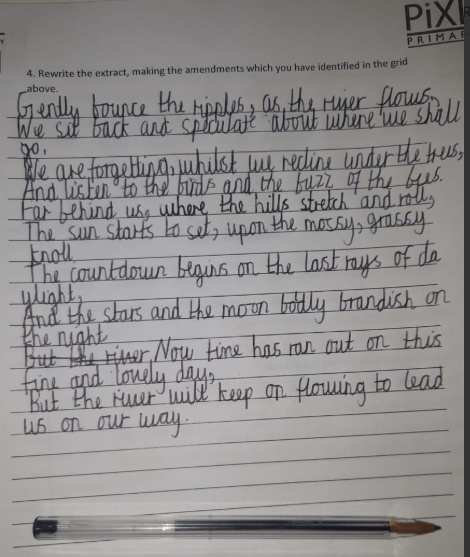 PiXL
PRIMAR
Y
4. Rewrite the extract, making the amendments which you have identified in the grid
above.
Gently bounce the ripples, as, the river flows,
We sit back and speculate about where we shall
go,
We are forgetting, whilst we recline under the trees,
And listen to the birds and the buzz of the bees.
Far behind us, where the hills stretch and roll,
The sun starts to set, upon the mossy, grassy
knoll.
The countdown begins on the last rays of da
ylight,
And the stars and the moon boldly brandish on
the night
But the river Now time has ran out on this
fine and lovely day,
But the river will keep on flowing to lead
us on our way.